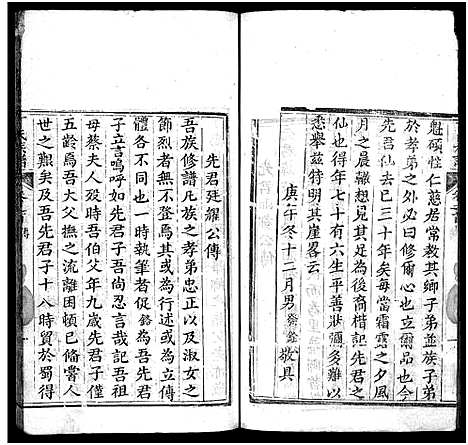 魁碩性仁慈居常教其鄉子弟並族子弟
於孝弟之外必曰修爾心也立爾品也今
先君仙去已三十年矣每當霜露之夕風
月之晨輒想見其為人焉
仙也得年七十有六生平善狀彌多難以
悉舉茲特明其崖畧云
庚午冬十二月男 敬具
先君廷耀公傳
吾族修譜凡族之孝弟忠正以及淑女之
節烈者並不登為其或為行述或為立傳
體各不同也一時執筆者促餘為吾先君
子立言嗚呼如先君子吾尚忍言哉吾曾
母蔡夫人歿時吾伯父年九歲先君子僅
五齡為吾大父撫之流離困頓已備嘗人
世之艱矣及吾先君子十八時貿於蜀得